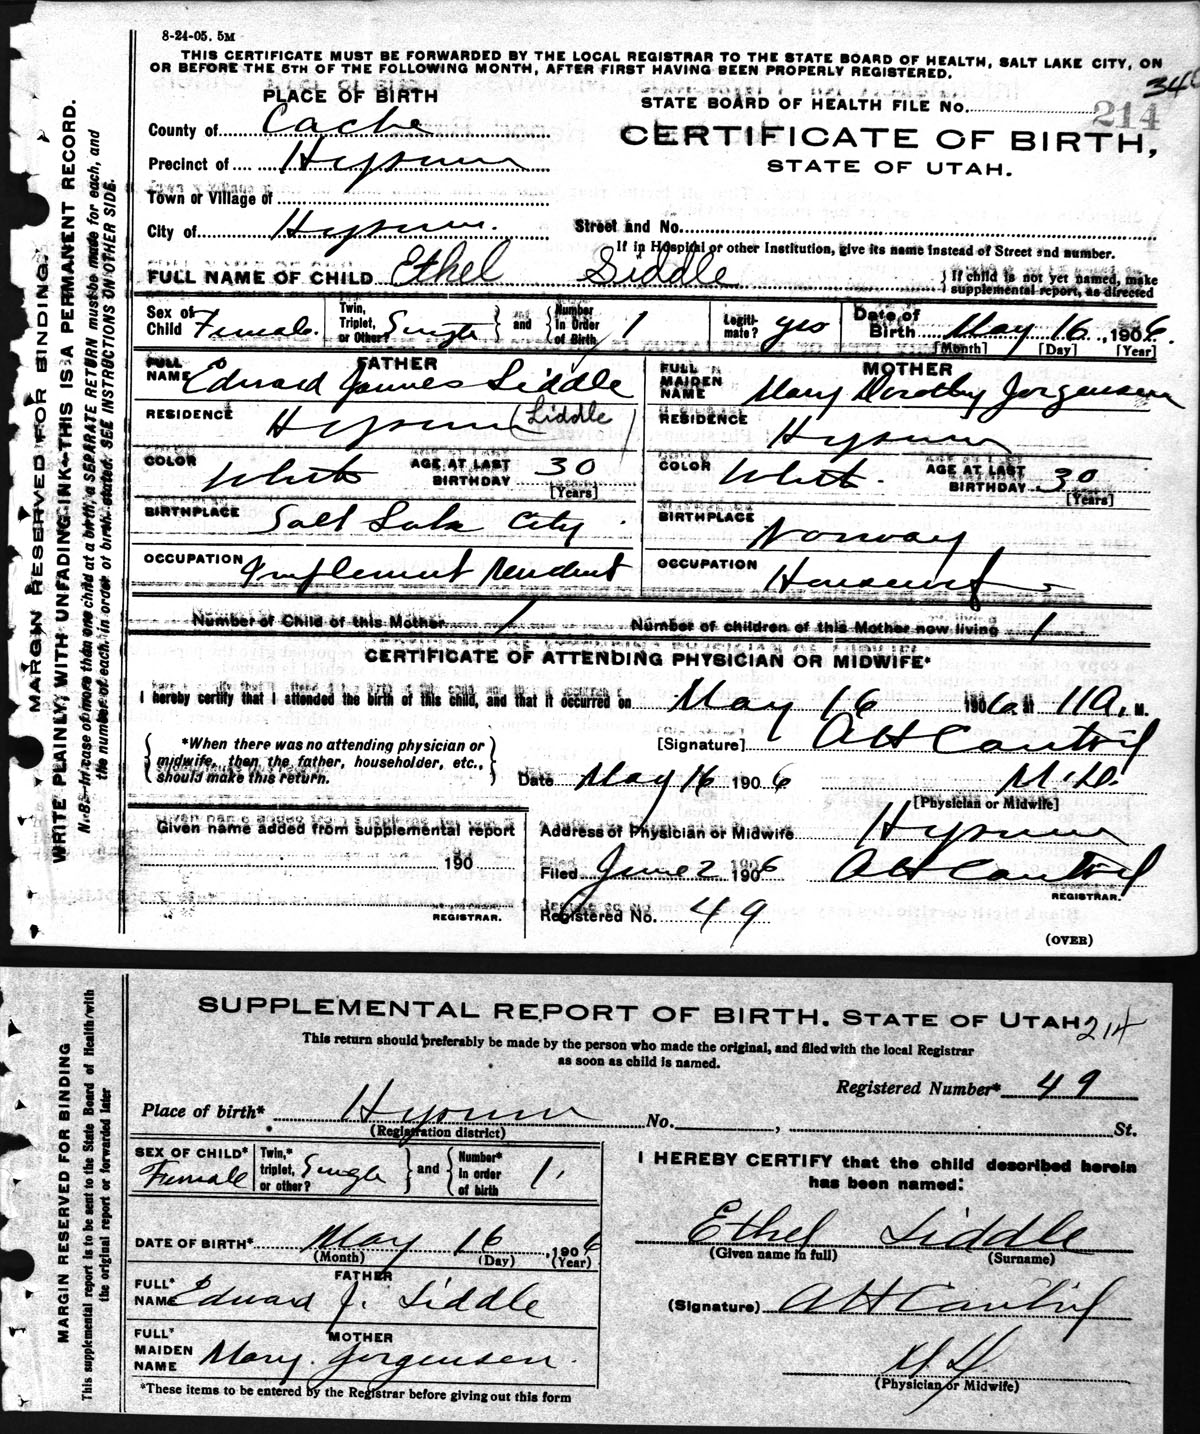 8-24-05. 5M
THIS CERTIFICATE MUST BE FORWARDED BY THE LOCAL REGISTRAR TO THE STATE BOARD OF HEALTH, SALT LAKE CITY, ON
OR BEFORE THE 5TH OF THE FOLLOWING MONTH, AFTER FIRST HAVING BEEN PROPERLY REGISTERED.
PLACE OF BIRTH
STATE BOARD OF HEALTH FILE No. 214
County of Cache
CERTIFICATE OF BIRTH,
Precinct of Hyrum
STATE OF UTAH.
Town or Village of
City of Hyrum. Street and No.
If in Hospital or other Institution, give its name instead of Street and number.
FULL NAME OF CHILD Ethel Siddle } If child is not yet named, make
supplemental report, as directed
Sex of Child Female. Twin, Triplet, or Other? Single } and { Number in Order of Birth 1 Legitimate? yes Date of Birth May 16, 1906
[Month] [Day] [Year]
FATHER MOTHER
FULL NAME Edward James Liddle FULL MAIDEN NAME Mary Dorothy Jorgensen
RESIDENCE Hyrum (Liddle) RESIDENCE Hyrum
COLOR White AGE AT LAST BIRTHDAY 30 [Years] COLOR White. AGE AT LAST BIRTHDAY 30 [Years]
BIRTHPLACE Salt Lake City BIRTHPLACE Norway
OCCUPATION Implement OCCUPATION Housewife
Number of Child of this Mother 1 Number of children of this Mother now living 1
CERTIFICATE OF ATTENDING PHYSICIAN OR MIDWIFE*
I hereby certify that I attended the birth of this child, and that it occurred on May 16 1906 at 11 A. M.
{ *When there was no attending physician or
midwife, then the father, householder, etc.,
should make this return. }
[Signature] A H Cantril
Date May 16 1906 M.D.
[Physician or Midwife]
Given name added from supplemental report
190
REGISTRAR.
Address of Physician or Midwife Hyrum
Filed June 2 1906 A H Cantril
REGISTRAR.
Registered No. 49
(OVER)
MARGIN RESERVED FOR BINDING.
WRITE PLAINLY, WITH UNFADING INK—THIS IS A PERMANENT RECORD.
N. B.—In case of more than one child at a birth, a SEPARATE RETURN must be made for each, and
the number of each, in order of birth, stated. SEE INSTRUCTIONS ON OTHER SIDE.
SUPPLEMENTAL REPORT OF BIRTH. STATE OF UTAH 214
This return should preferably be made by the person who made the original, and filed with the local Registrar
as soon as child is named.
Registered Number* 49
Place of birth* Hyrum No. , St.
(Registration district)
SEX OF CHILD* Female Twin,* triplet, or other? Single } and { Number* in order of birth 1
I HEREBY CERTIFY that the child described herein
has been named:
Ethel Liddle
(Given name in full) (Surname)
DATE OF BIRTH* May 16, 1906
(Month) (Day) (Year)
FATHER
FULL* NAME Edward J. Liddle
(Signature) A H Cantril
MOTHER
FULL* MAIDEN NAME Mary Jorgensen.
(Physician or Midwife)
*These items to be entered by the Registrar before giving out this form
MARGIN RESERVED FOR BINDING
This supplemental report is to be sent to the State Board of Health with
the original report or forwarded later